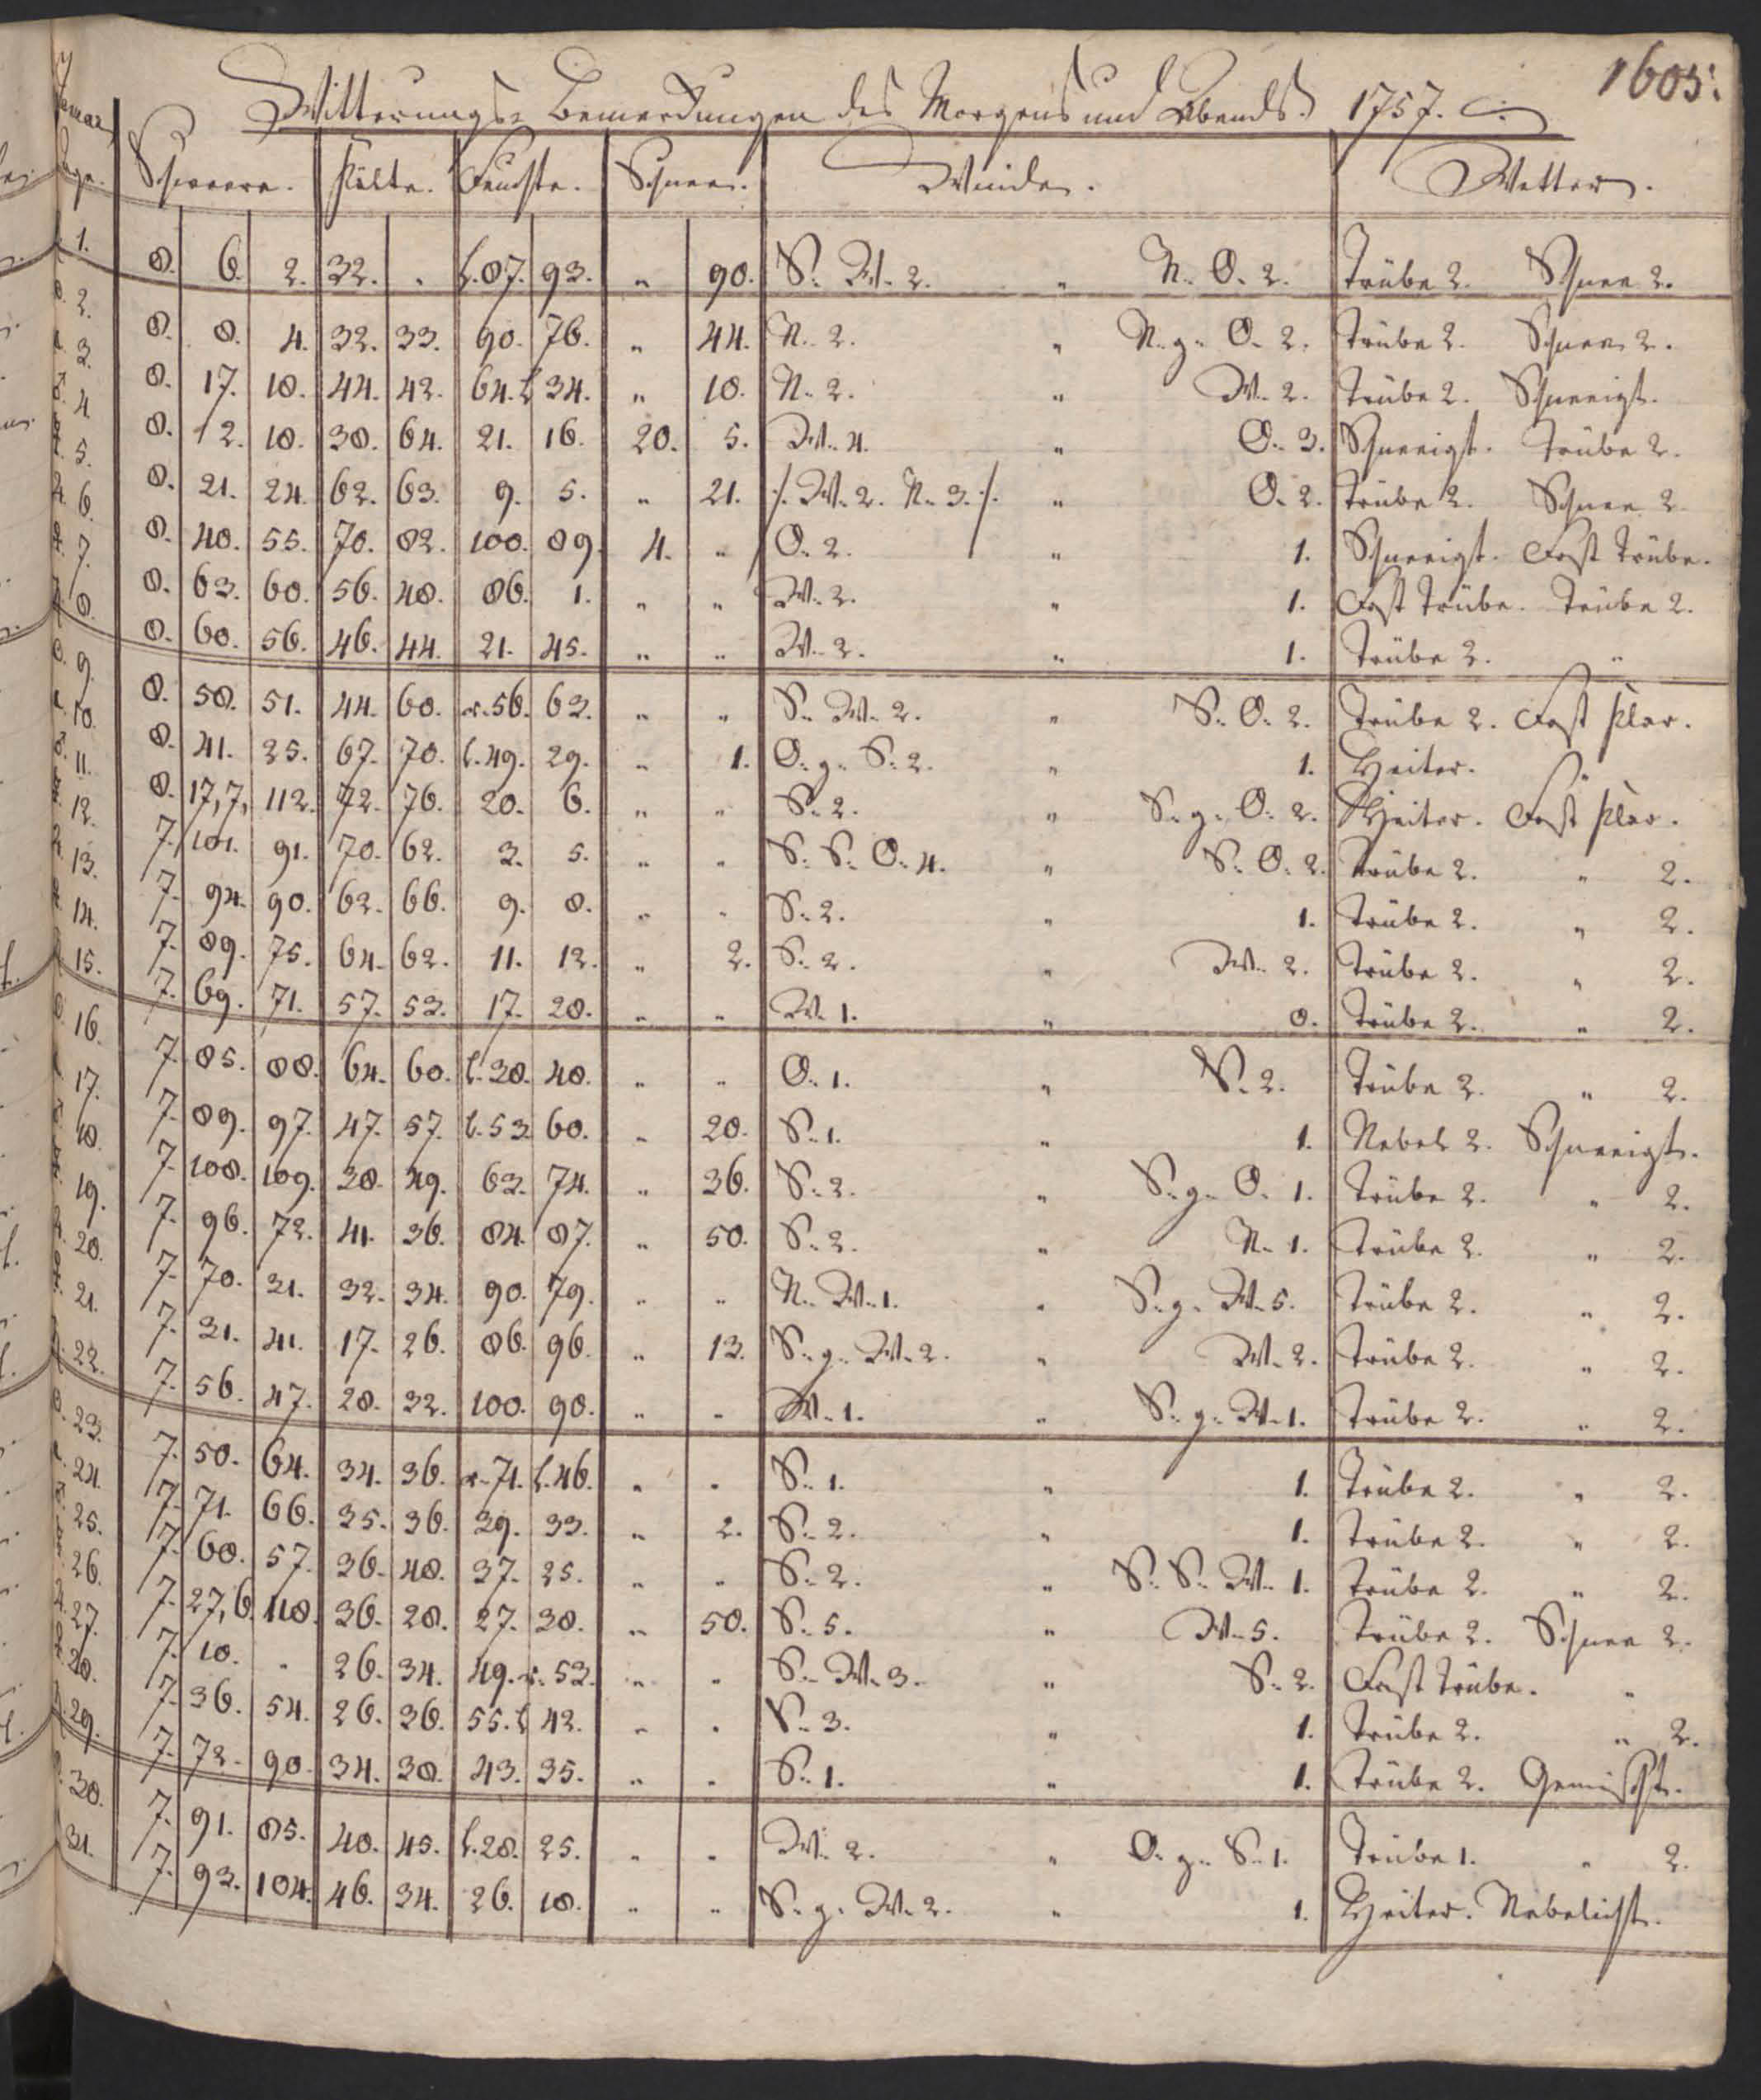 1605.
Witterungs- Bemerckungen des Morgens und Abends. 1757.
Januar
Tage. Schwere. Kälte. Feuchte. Schnee. Winde. Wetter.
1. 8. 6. 2. 32. . l.87. 93. " 90. S. W. 2. " N. O. 2. Trübe 2. Schnee 2.
2. 8. 8. 4. 32. 33. 90. 76. " 44. N. 2. " N. g. O. 2. Trübe 2. Schnee 2.
3. 8. 17. 18. 44. 42. 64. l 34. " 18. N. 2. " W. 2. Trübe 2. Schneeigt.
4. 8. 12. 18. 38. 64. 21. 16. 20. 5. W. 4. " O. 3. Schneeigt. Trübe 2.
5. 8. 21. 24. 62. 63. 9. 5. " 21. /. W. 2. N. 3. /. " O. 2. Trübe 2. Schnee 2
6. 8. 40. 55. 70. 82. 100. 89. 4. " O. 2. " 1. Schneeigt. Fast Trübe.
7. 8. 63. 60. 56. 48. 86. 1. " " W. 2. " 1. Fast Trübe. Trübe 2.
8. 8. 60. 56. 46. 44. 21. 45. " " W. 2. " 1. Trübe 2. "
9. 8. 58. 51. 44. 60. r.56. 63. " " S. W. 2. " S. O. 2. Trübe 2. Fast klar.
10. 8. 41. 25. 67. 70. l.49. 29. " 1. O. g. S. 2. " 1. Heiter. "
11. 8. 17,7, 112. 72. 76. 20. 6. " " S. 2. " S. g. O. 2. Heiter. Fast klar.
12. 7. 101. 91. 70. 62. 3. 5. " " S. S. O. 4. " S. O. 2. Trübe 2. " 2.
13. 7. 94. 90. 62. 66. 9. 8. " " S. 2. " 1. Trübe 2. " 2.
14. 7. 89. 75. 64. 62. 11. 12. " 2. S. 2. " W. 2. Trübe 2. " 2.
15. 7. 69. 71. 57. 53. 17. 28. " " W. 1. " 0. Trübe 2. " 2.
16. 7. 85. 88. 64. 60. l.38. 48. " " O. 1. " S. 2. Trübe 2. " 2.
17. 7. 89. 97. 47. 57. l.53. 60. " 20. S. 1. " 1. Nebel 2. Schneeigt.
18. 7. 108. 109. 38. 49. 63. 74. " 36. S. 2. " S. g. O. 1. Trübe 2. " 2.
19. 7. 96. 72. 41. 36. 84. 87. " 50. S. 2. " N. 1. Trübe 2. " 2.
20. 7. 70. 31. 32. 34. 90. 79. " " N. W. 1. " S. g. W. 5. Trübe 2. " 2.
21. 7. 31. 41. 17. 26. 86. 96. " 13. S. g. W. 2. " W. 2. Trübe 2. " 2.
22. 7. 56. 47. 28. 32. 100. 98. " " W. 1. " S. g. W. 1. Trübe 2. " 2.
23. 7. 50. 64. 34. 36. r.71. l.46. " " S. 1. " 1. Trübe 2. " 2.
24. 7. 71. 66. 35. 36. 39. 33. " 2. S. 2. " 1. Trübe 2. " 2.
25. 7. 60. 57. 36. 40. 37. 25. " " S. 2. " S. S. W. 1. Trübe 2. " 2.
26. 7. 27,6. 118. 36. 28. 27. 38. " 50. S. 5. " W. 5. Trübe 2. Schnee 2.
27. 7. 10. " 26. 34. 49. r. 53. " " S. W. 3. " S. 2. Fast Trübe. "
28. 7. 36. 54. 26. 36. 55. l 42. " " S. 3. " 1. Trübe 2. " 2.
29. 7. 72. 90. 34. 38. 43. 35. " " S. 1. " 1. Trübe 2. Gemischt.
30. 7. 91. 85. 48. 45. l.28. 25. " " W. 2. " O. g. S. 1. Trübe 1. " 2.
31. 7. 93. 104. 46. 34. 26. 18. " " S. g. W. 2. " 1. Heiter. Nebelicht.